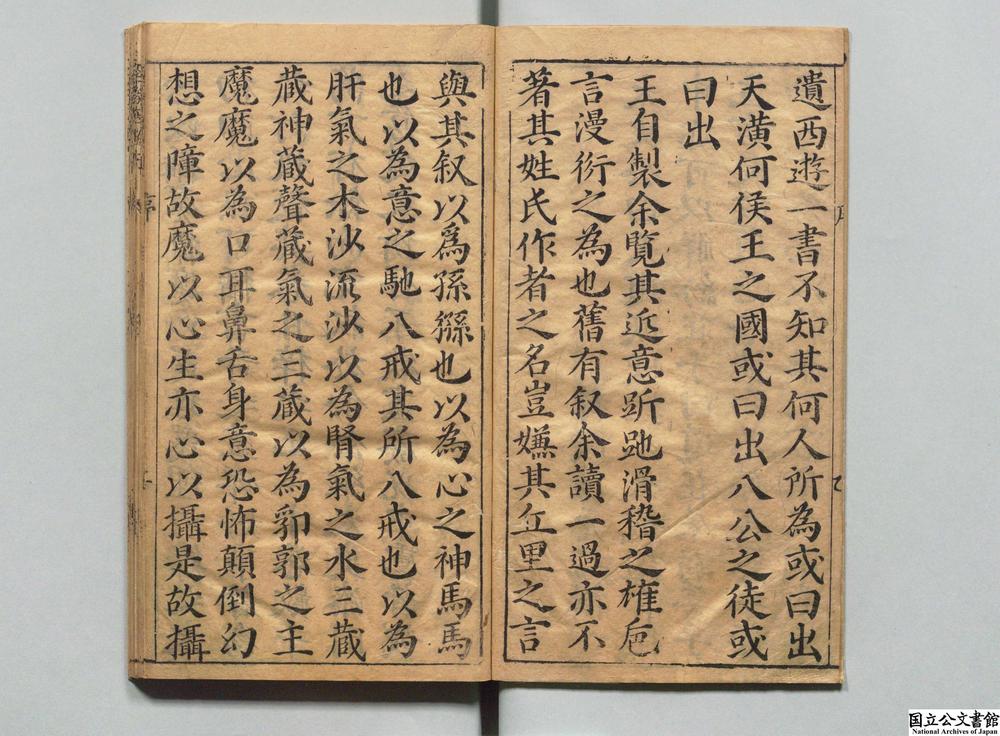 遺西遊一書不知其何人所為或曰出
天潢何侯王之國或曰出八公之徒或
曰出
王自製余覽其近意跅䟃滑稽之雄巵
言漫衍之為也舊有叙余讀一過亦不
著其姓氏作者之名豈嫌其丘里之言
與其叙以爲孫猻也以為心之神馬馬
也以為意之馳八戒其所八戒也以為
肝氣之木沙流沙以為腎氣之水三藏
蔵神蔵聲蔵氣之三蔵以為郛郭之主
魔魔以為口耳鼻舌身意恐怖顛倒幻
想之障故魔以心生亦心以攝是故攝
序
国立公文書館
National Archives of Japan